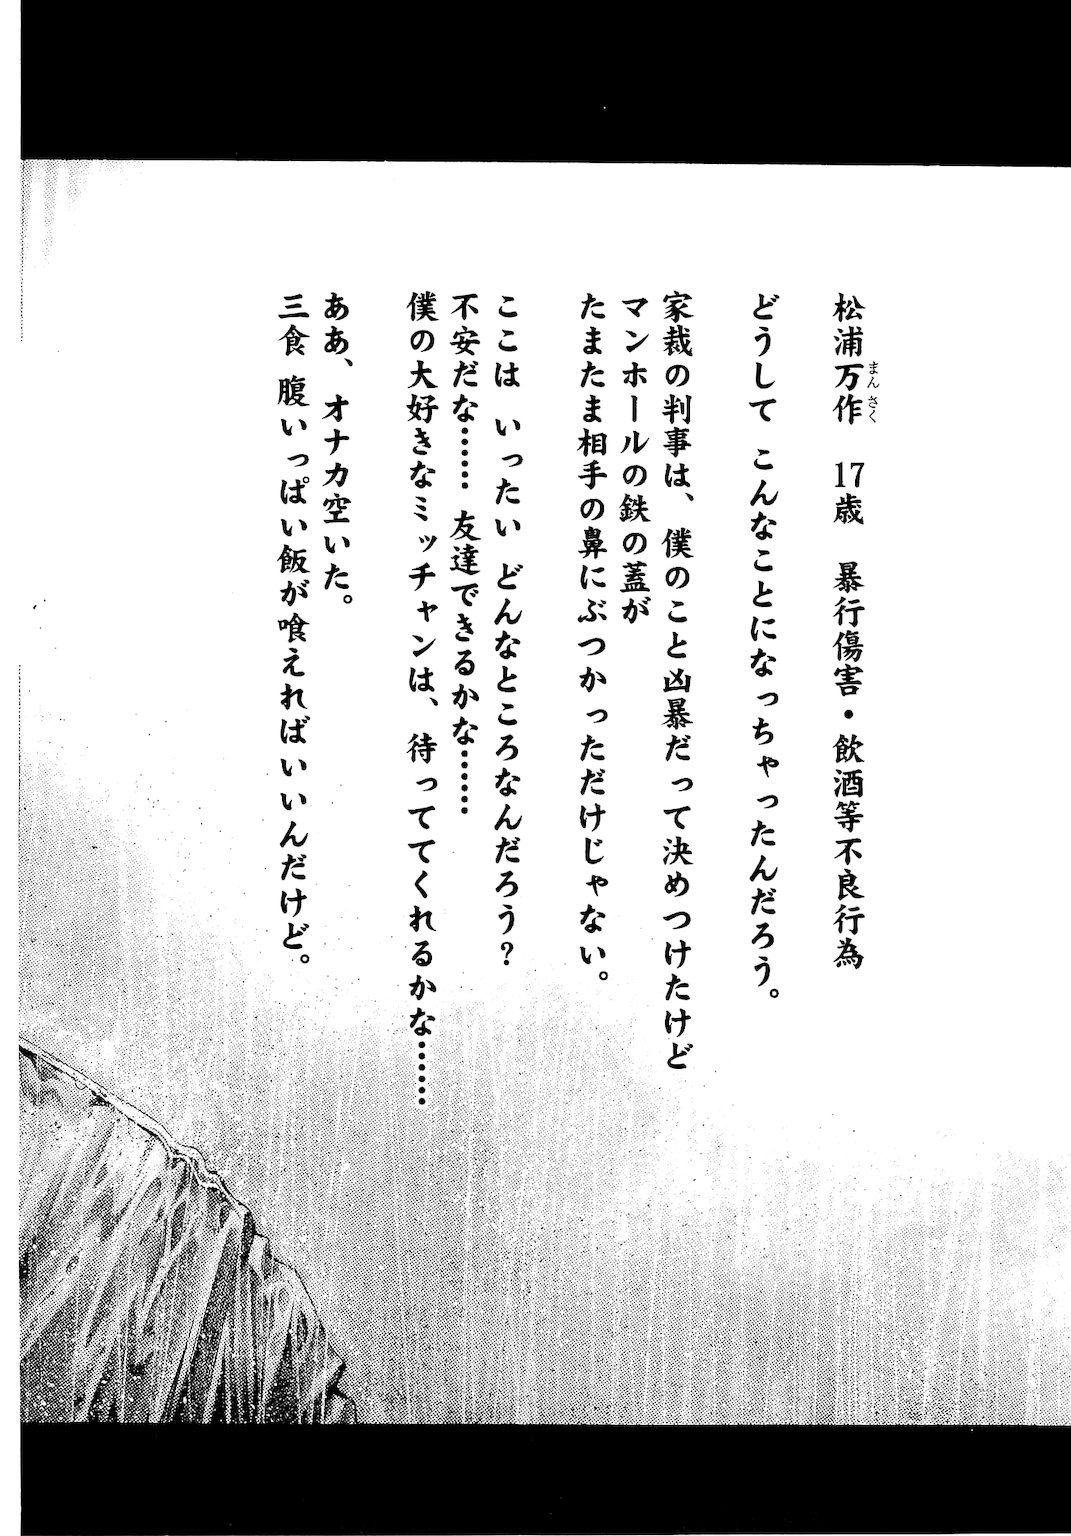 松浦万作　17歳　暴行傷害・飲酒等不良行為
まんさく
どうして こんなことになっちゃったんだろう。
家裁の判事は、僕のこと凶暴だって決めつけたけど
マンホールの鉄の蓋が
たまたま相手の鼻にぶつかっただけじゃない。
ここは いったい どんなところなんだろう？
不安だな…… 友達できるかな……
僕の大好きなミッチャンは、待っててくれるかな……
ああ、オナカ空いた。
三食 腹いっぱい飯が喰えればいいんだけど。